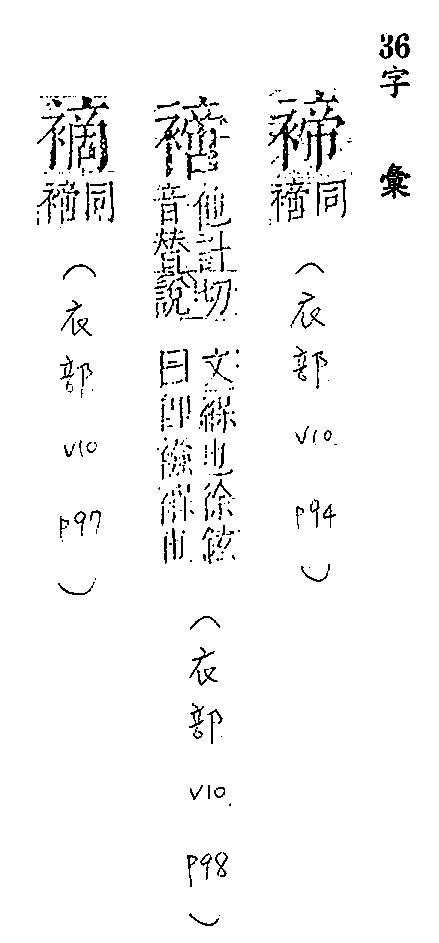 36字彙
褅同䙗(衣部 V10. P94)
䙗他計切音替說文緥也徐鉉曰即襁緥也(衣部 V10. P98)
同䙗(衣部 V10 P97)